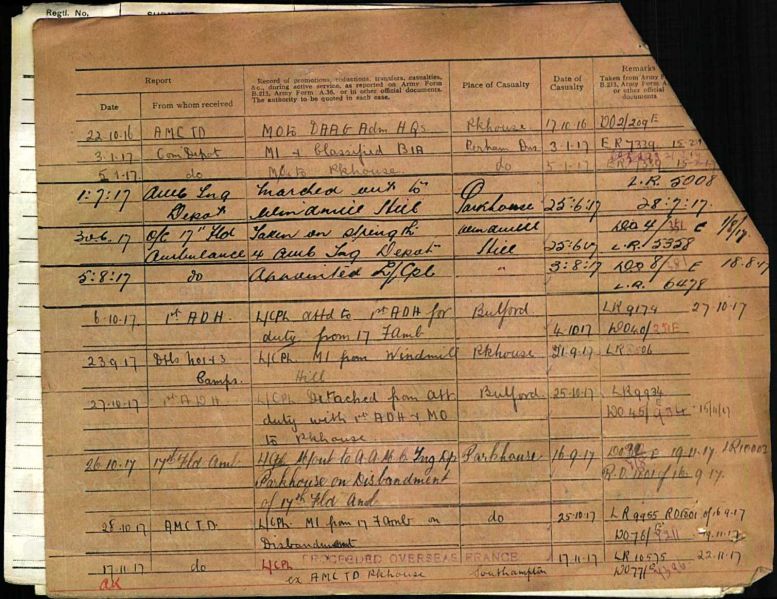 Regtl. No.
Report
Record of promotions, reductions, transfers, casualties, &c., during active service, as reported on Army Form B.213, Army Form A.36, or in other official documents. The authority to be quoted in each case.
Place of Casualty
Date of Casualty
Remarks
Taken from Army F
B.213, Army Form A.
or other official
documents
Date
From whom received
22.10.16 AMCTD MO to DAAG Adm HQs Pkhouse 17.10.16 DO2/209E
3.1.17 Com Depot MI & Classified B1A Perham Dns 3.1.17 ER 7339
5.1.17 do MO to Pkhouse do 5.1.17
1:7:17 Amb Tng Marched out to L.R. 5008
Depot Windmill Hill Parkhouse 25:6:17 28:7:17.
30.6.17 O/C 17th Fld Taken on strength Windmill DO 4/ E 1/8/17
Ambulance 4 Amb Tng Depot Hill 25:6:17 L.R. 5328
5:8:17 do Appointed L/Cpl " 3:8:17 DO 8/ E 18.8.17
L.R. 6478
6.10.17. 1st ADH. L/CPL attd to 1st ADH for Bulford. LR9174 27.10.17
duty from 17 F Amb 4.10.17 DO40/
23.9.17 Dtls No1+3 L/CPL. MI from Windmill Pkhouse 21.9.17 LR
Camps. Hill
27.10.17 1st ADH L/CPL Detached from att Bulford 25.10.17 LR9934
duty with 1st ADH & MO DO45/ 15/11/17
to Pkhouse.
26.10.17 17th Fld Amb. L/Cpl M/out to A.A.M.C Tng Dp Parkhouse 16.9.17 19.11.17 LR10002
Parkhouse on Disbandment R.O. 1801 of 16.9.17.
of 17th Fld Amb
28.10.17 AMCTD. L/CPL. MI from 17 F Amb on do 25.10.17 LR9955 RO1801 of 16.9.17
Disbandment DO76/ 19.11.17
17.11.17 do L/CPL PROCEEDED OVERSEAS FRANCE 17.11.17 LR10575 22.11.17
ex AMCTD Pkhouse Southampton DO77/